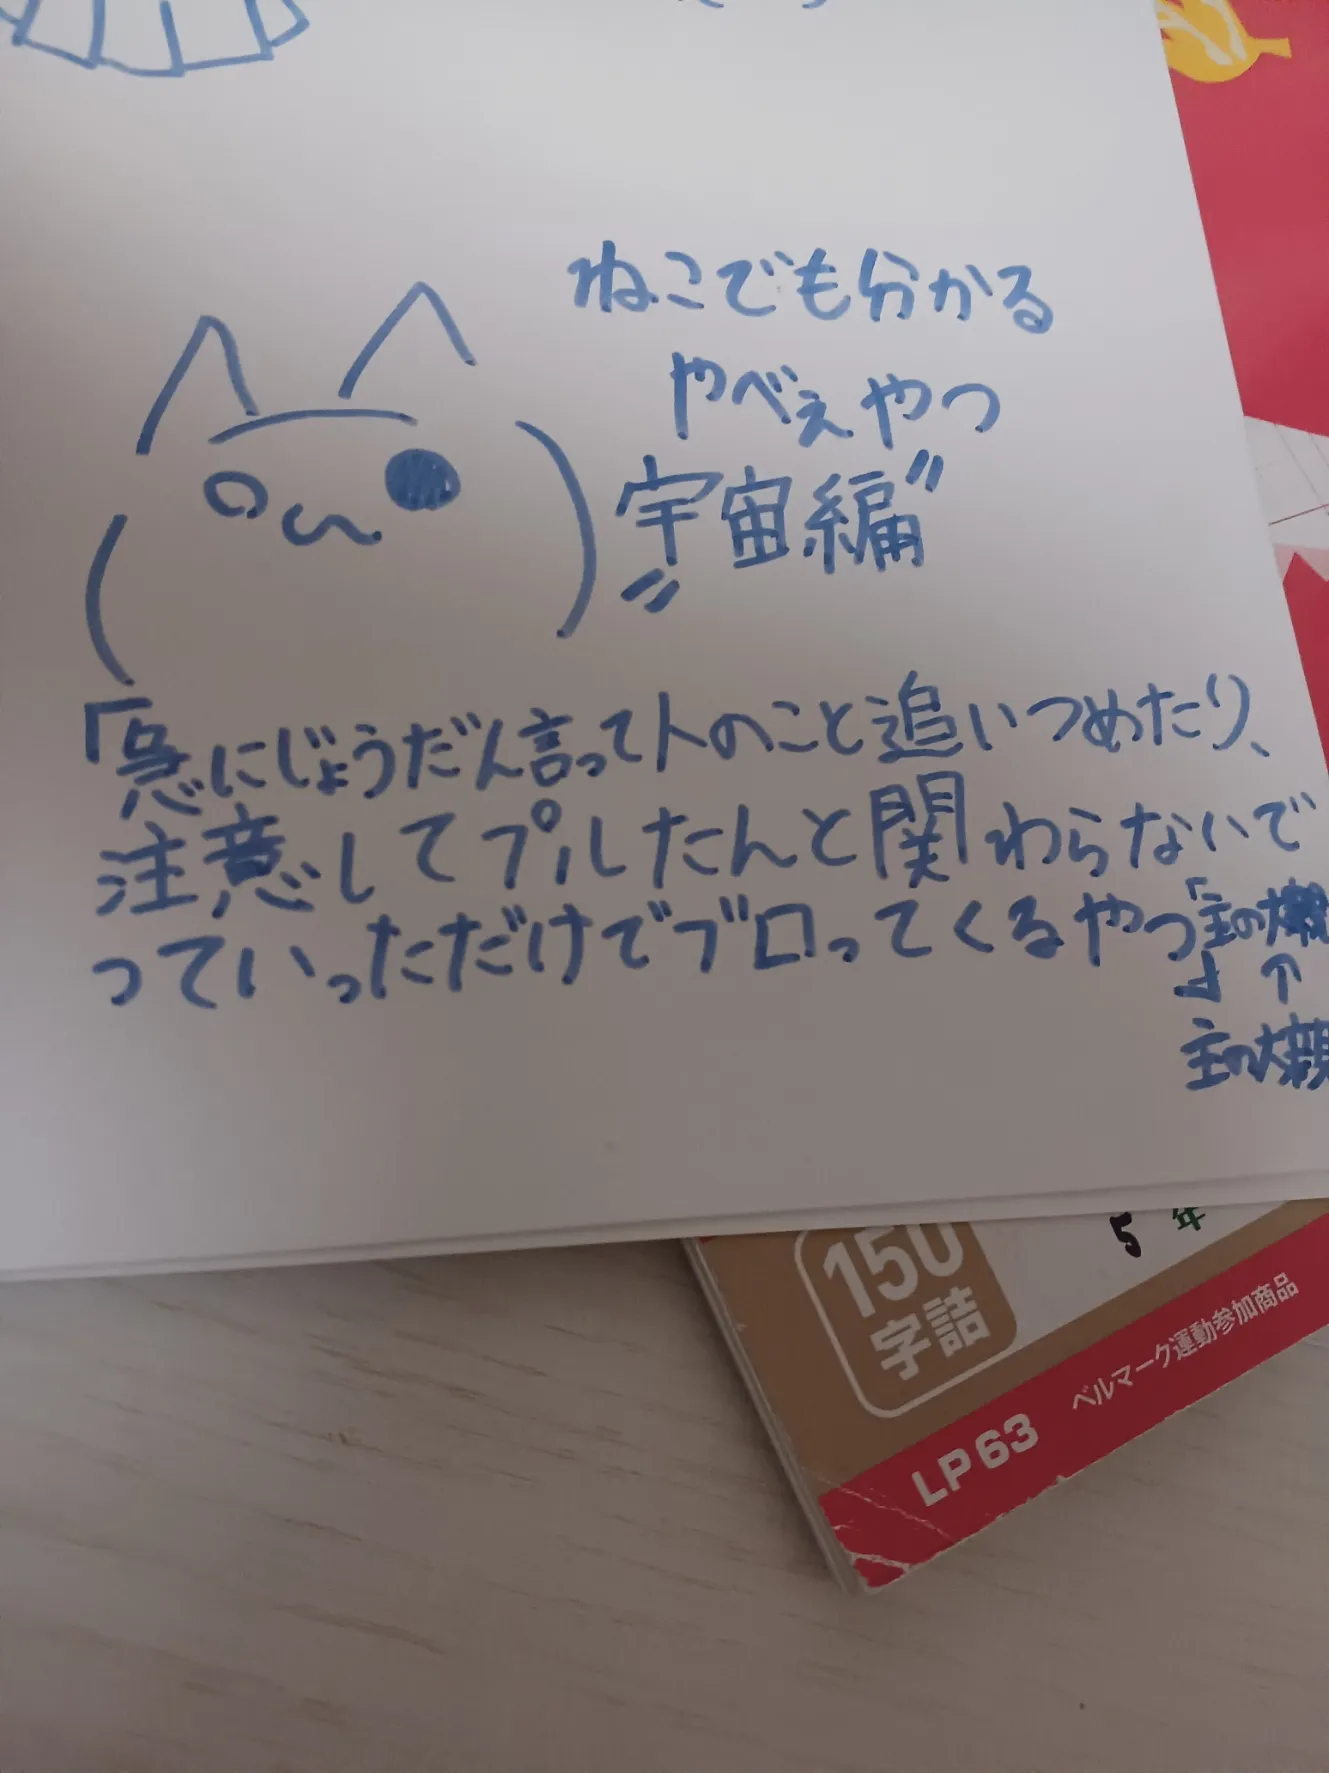 ねこでも分かる
やべぇやつ
〝宇宙編〟
「急にじょうだん言って人のこと追いつめたり、
注意してプルたんと関わらないで
っていっただけでブロってくるやつ「主の大親
」 ↑
主の大親
150
字詰
5年
LP63
ベルマーク運動参加商品